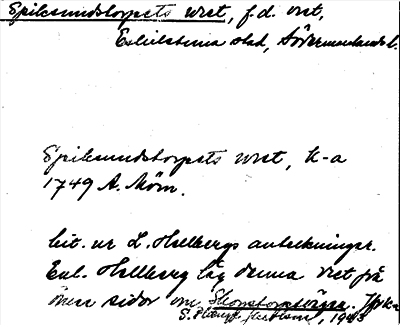 Spiksundstorpets vret, f.d. vret,
Eskilstuna stad, Södermanlands l.
Spiksundstorpets vret, k-a
1749 A. Mörn.
Cit. ur L. Hellbergs anteckningar.
Enl. Hellberg låg denna vret på
ömse sidor om
S. 1943